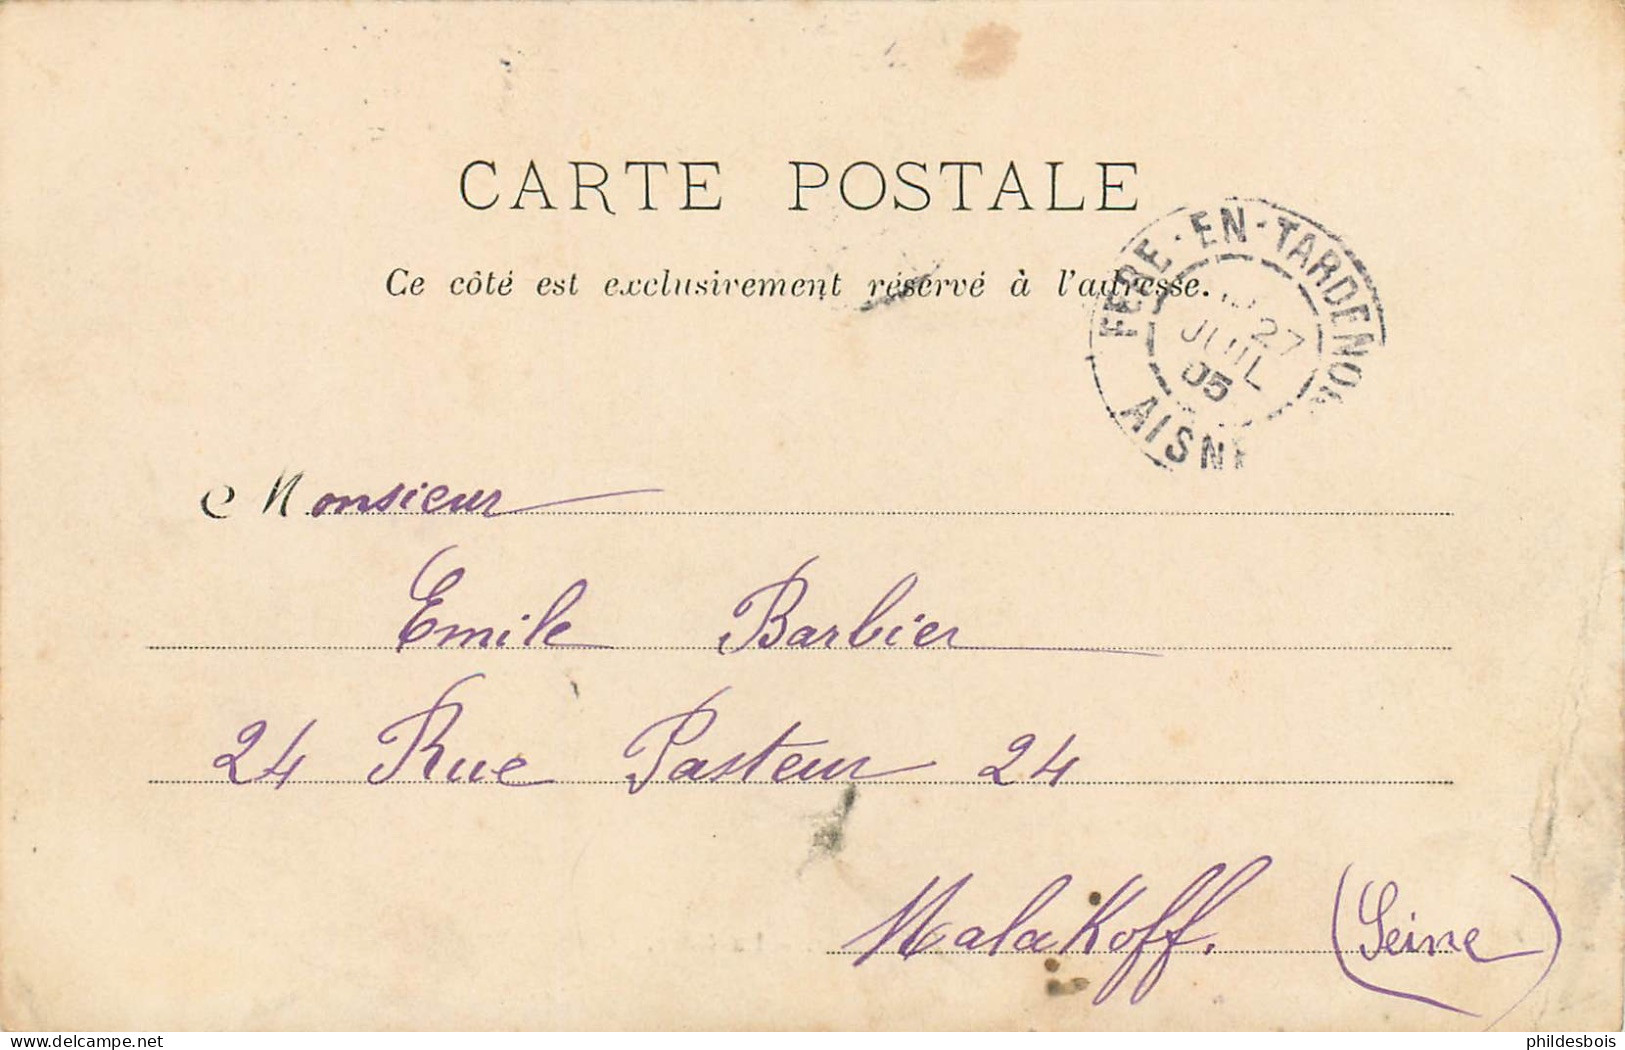 CARTE POSTALE
Ce côté est exclusivement réservé à l'adresse.
FERE-EN-TARDENOIS
27
JUIL
05
AISNE
Monsieur
Emile Barbier
24 Rue Pasteur 24
Malakoff. (Seine)
delcampe.net
phildesbois